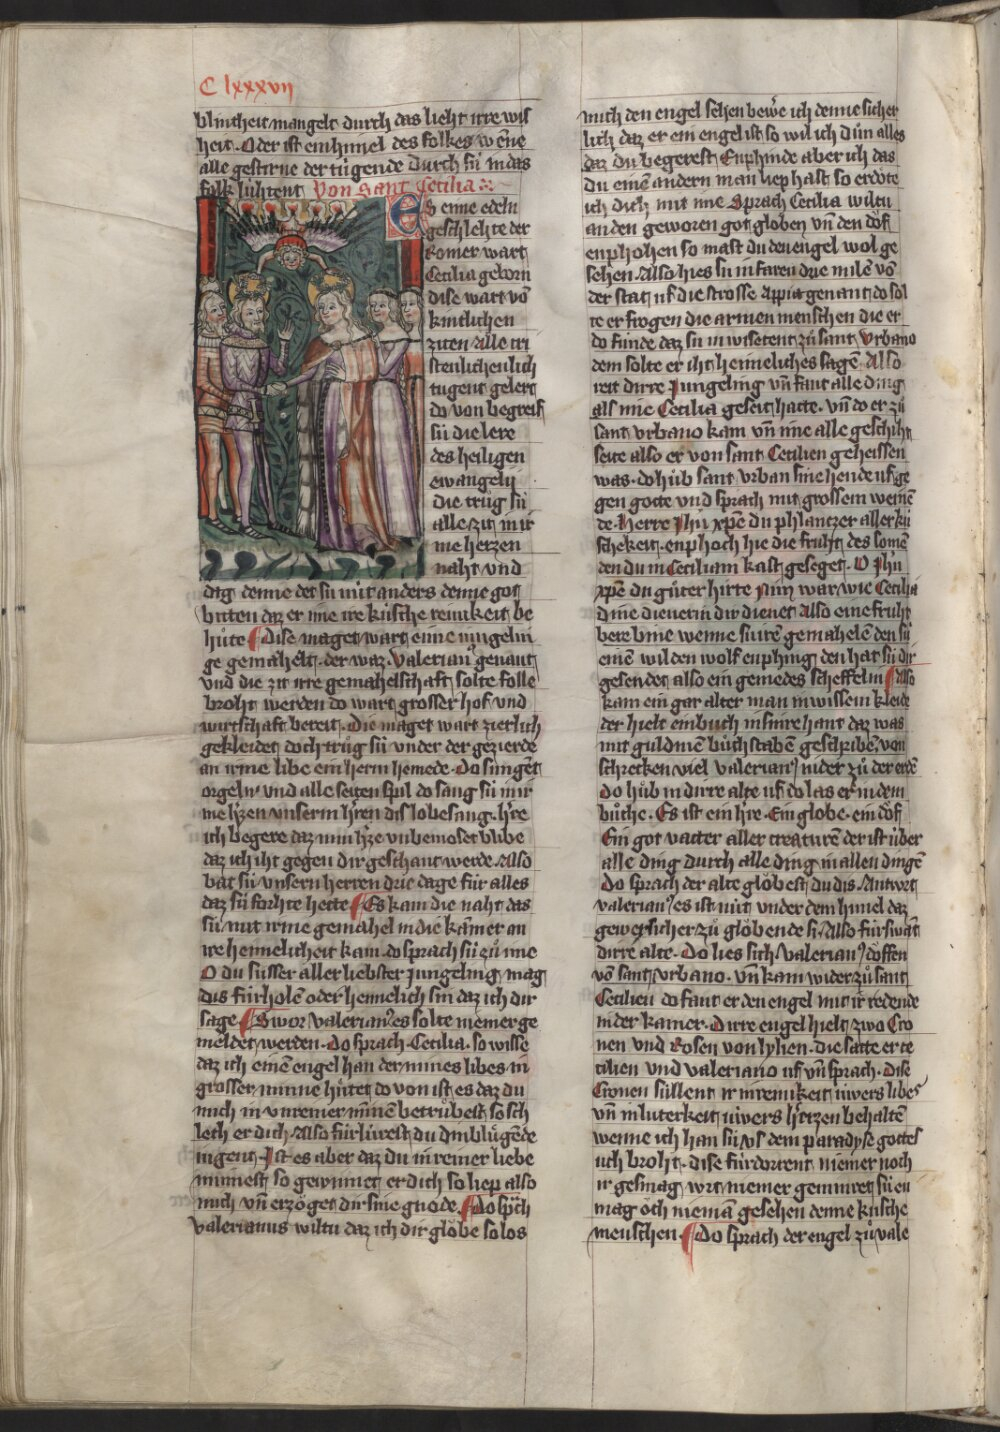 C lxxxvii
blintheit mangelt durch das lieht irre wis
heit. Oder ist ein himel des folkes wēne
alle gestirne der tugende durch sú in das
folk lúhtent Von Sant Cecilia
Es eime edeln
geschlehte der
Romer wart
Cecilia geborn
dise wart vō
kintlichen
ziten alle cri
stenlichenlich
tugent gelert
do von begreif
sú die lere
des heiligen
ewangelii
die trůg sú
alle zit in ir
me herzen
naht und
dag denne det sú nút anders denne got
bitten daz er ime ire kúsche reinikeit be
hůte Dise maget wart eime iungelin
ge gemahelt. der waz Valerianꝰ genant
vnd die zit irre gemahelschaft solte folle
broht werden do wart grosser hof vnd
wirtschaft bereit. Die maget wart zierlich
gekleidet doch trůg sú vnder der gezierde
an irme libe ein herin hemede. Do singēt
orgeln vnd alle seiten spil do sang sú in ir
me h̄zen unserm h̄ren dis lobesang. h̄re
ich begere daz min h̄ze vnbemoset blibe
daz ich iht gegen dir geschant werde. Also
bat sú vnsern herren drie dage fúr alles
daz sú forhte hette Es kam die naht das
sú mit irme gemahel in die kām̄er an
ire heimelicheit kam. do sprach sú zů ime
O du sússer aller liebster jungeling mag
dis fúrholē oder heimelich sin daz ich dir
sage Swor Valerianꝰ es solte niemer ge
meldet werden. Do sprach Cecilia. so wisse
daz ich einē engel han der mines libes in
grosser minne hůtet do von ist es daz du
mich in vnreiner minnē betrůbest so sch
lech er dich. Also fúrlúrest du din blůgēde
iugent. Ist es aber daz du in reiner liebe
minnest so gewinnet er dich so liep also
mich vn̄ erzöget dir sine gnode. Do sp̄ch
Valerianus wiltu daz ich dir glöbe so los
mich den engel sehen bewē ich denne sicher
lich daz er ein engel ist so wil ich důn alles
daz du begerest Enphinde aber ich das
du einē andern man liep hast so erdöte
ich dich mit ime Sprach Cecilia wiltu
an den geworen got globen vn̄ den döf
enphohen so maht du den engel wol ge
sehen. Also hies sú in faren drie milē vō
der stat uf die strosse Appia genant do sol
te er frogen die armen menschen die er
do fúnde daz sú in wisetent zů sant Vrbano
dem solte er iht heimeliches sagē. Also
reit dirre jungeling vn̄ fant alle ding
als ime Cecilia geseit hatte. vn̄ do er zů
sant Vrbano kam vn̄ ime alle geschiht
seite also er von sant Cecilien geheissen
was. do hůb sant Vrban sine hende uf ge
gen gotte vnd sprach mit grossem weinē
de. Herre Jhū xp̄e du phlantzer aller kú
schekeit. enphoch hie die fruht des somē
den du in Ceciliam hast geseget. O Jhū
xp̄e du gůter hirte Nim war wie Cecilia
dine dienerin dir dienet Also eine fruht
bere bine wenne su irē gemahelē den sú
einē wilden wolf enphing den hat sú dir
gesendet also ein gemedes scheffelin Also
kam ein gar alter man in wissem kleide
der hielt ein bůch in sinre hant daz was
mit guldinē bůchstabē geschribē. von
schrecken viel Valerianꝰ nider zů der erdē
do hůb in dirre alte uf do las er in dem
bůche. Es ist ein h̄re. Ein globe. ein döf
Ein got vatter aller creaturē der ist úber
alle ding durch alle ding in allen dingē
Do sprach der alte glöbest du dis. Antwrt
Valerianꝰ es ist nút vnder dem himel daz
gewerlicher zů glöbende si. Also fúrswāt
dirre alte. Do lies sich Valerianꝰ döffen
vō sant Vrbano. vn̄ kam wider zů sant
Cecilien do fant er den engel mit ir redende
in der kamer. Dirre engel hielt zwo Cro
nen vnd Rosen von lylien. die satte er ce
cilien vnd Valeriano uf vn̄ sprach. Dise
Cronen súllent ir in reinikeit úwers libes
vn̄ in luterkeit úwers h̄tzen behaltē
wenne ich han sú vs dem paradyse gottes
úch broht. dise fúrdorrent niemer noch
ir gesmag wrt niemer geminret sú en
mag och niemā gesehen denne kúsche
menschen. Do sprach der engel zů Vale